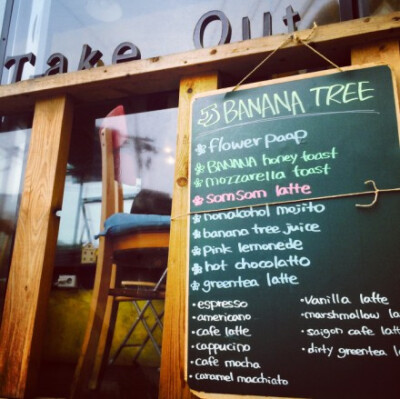 Take Out
BANANA TREE
flower paap
BANANA honey toast
mozzarella toast
somsom latte
nonalcohol mojito
banana tree juice
pink lemonede
hot chocolatto
greentea latte
• espresso
• americano
• cafe latte
• cappucino
• cafe mocha
• caramel macchiato
• Vanilla latte
• marshmallow la
• saigon cafe latt
• dirty greentea l